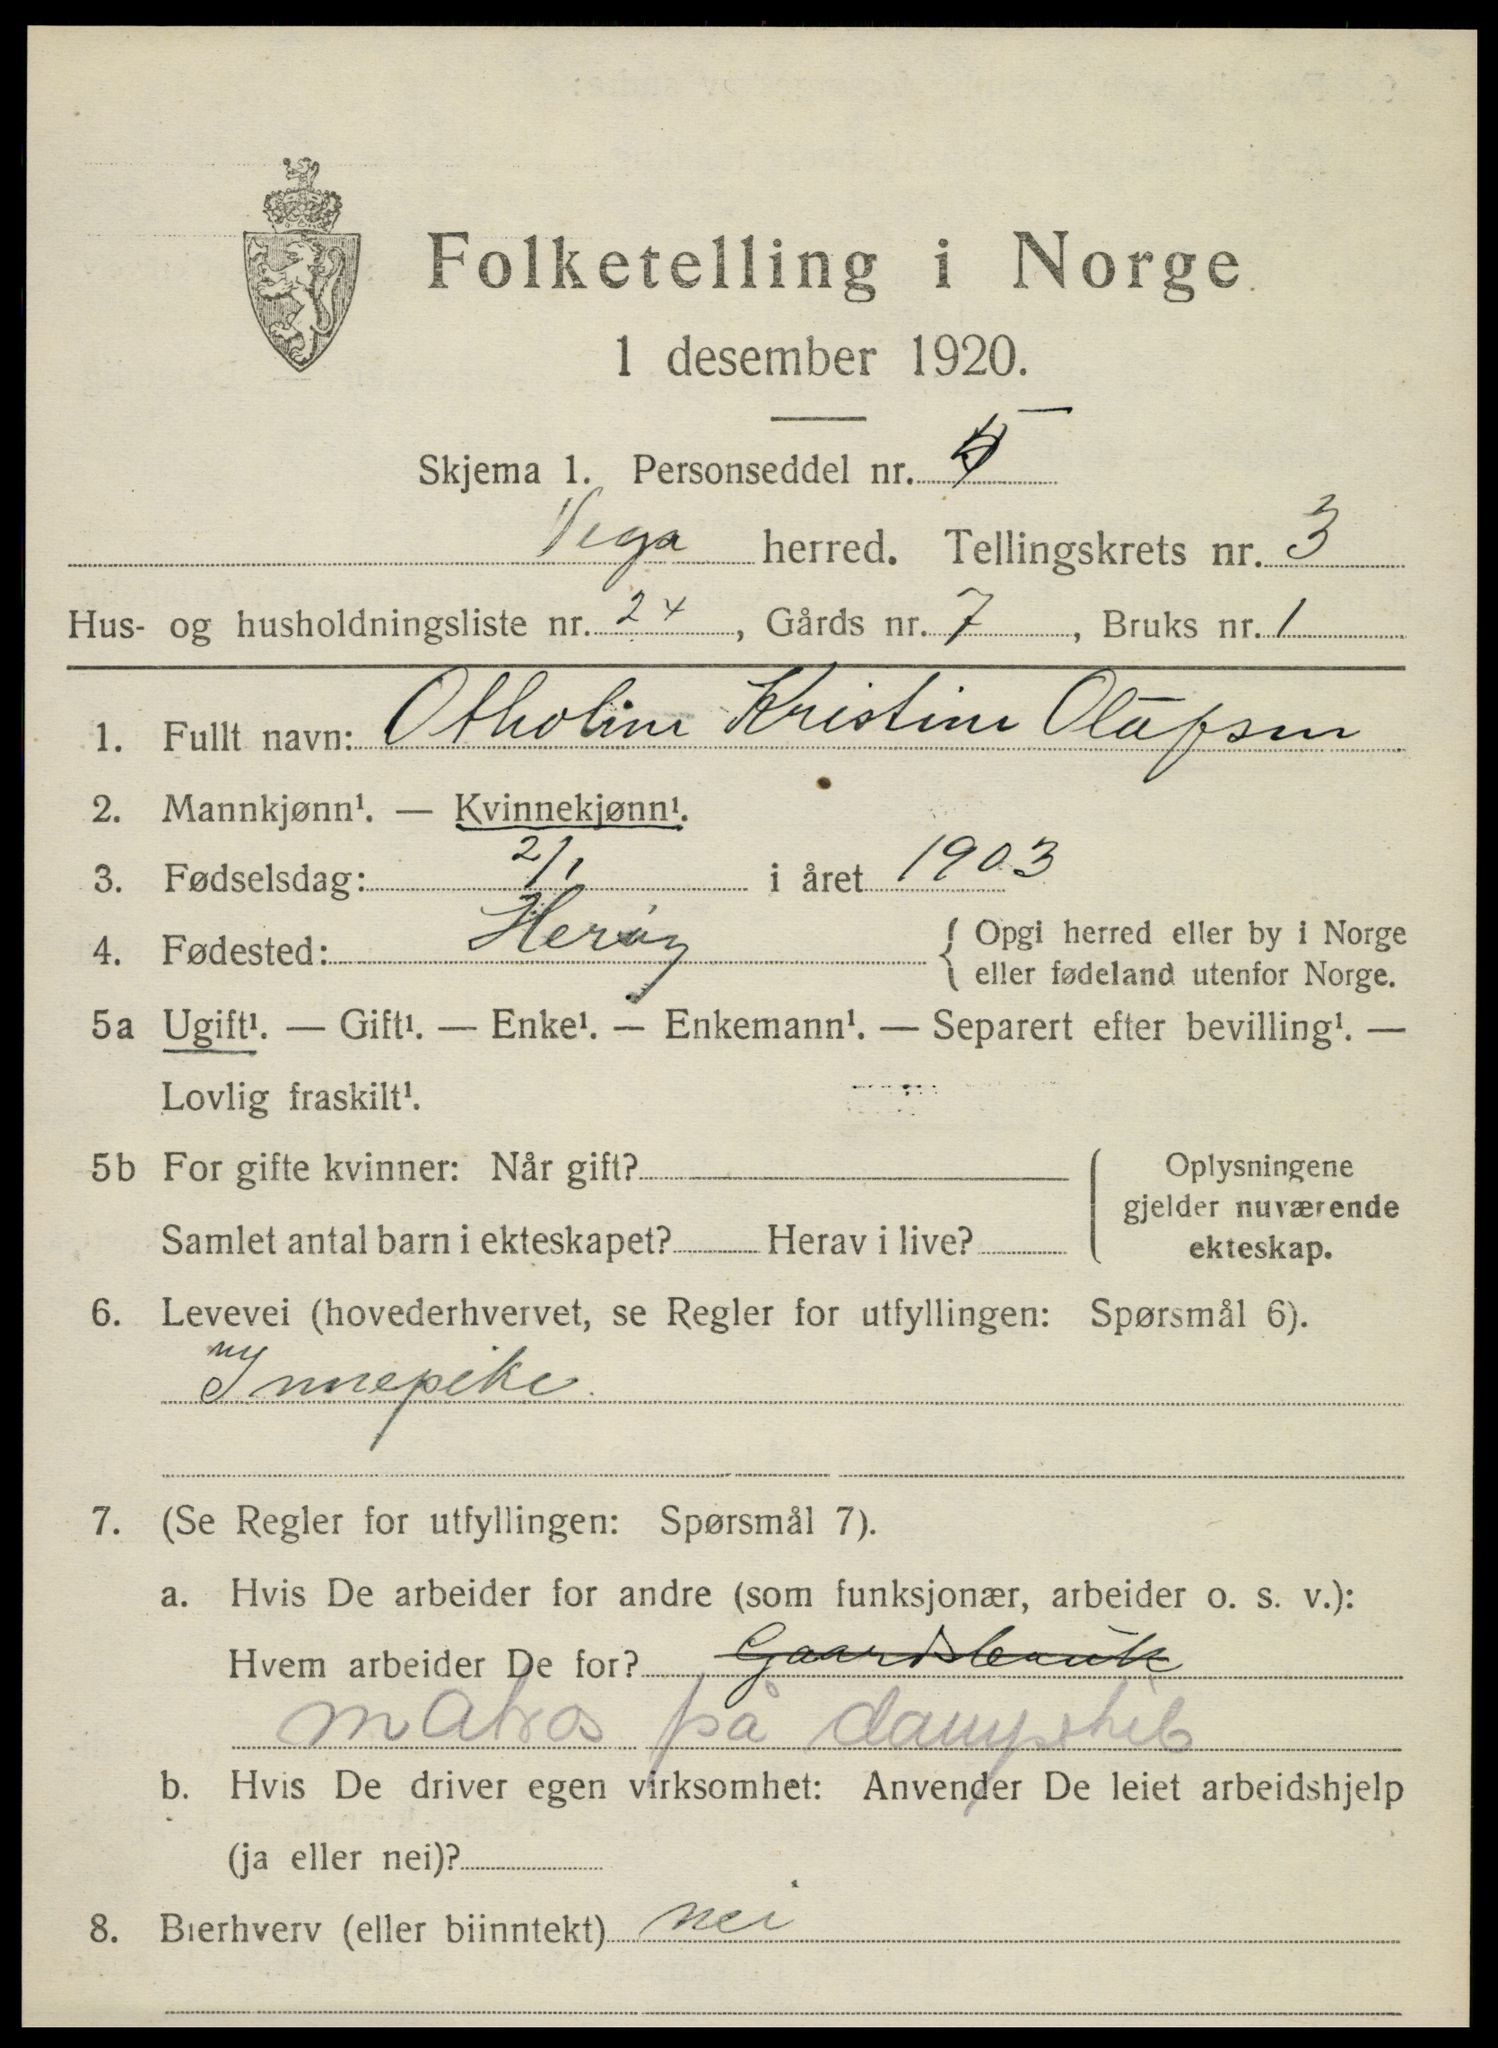 Folketelling i Norge
1 desember 1920.
Skjema 1. Personseddel nr.
Vega herred. Tellingskrets nr. 3
Hus- og husholdningsliste nr. 24, Gårds nr. 7, Bruks nr. 1
1. Fullt navn: Otholine Kristine Olafsen
2. Mannkjønn¹. — Kvinnekjønn¹.
3. Fødselsdag: 2/1 i året 1903
4. Fødested: Herøy { Opgi herred eller by i Norge
eller fødeland utenfor Norge.
5a Ugift¹. — Gift¹. — Enke¹. — Enkemann¹. — Separert efter bevilling¹. —
Lovlig fraskilt¹.
5b For gifte kvinner: Når gift?
Samlet antal barn i ekteskapet? Herav i live?
Oplysningene
gjelder nuværende
ekteskap.
6. Levevei (hovederhvervet, se Regler for utfyllingen: Spørsmål 6).
Innepike
7. (Se Regler for utfyllingen: Spørsmål 7).
a. Hvis De arbeider for andre (som funksjonær, arbeider o. s. v.):
Hvem arbeider De for? Gaardsbruk
matros på dampskib
b. Hvis De driver egen virksomhet: Anvender De leiet arbeidshjelp
(ja eller nei)?
8. Bierhverv (eller biinntekt) nei